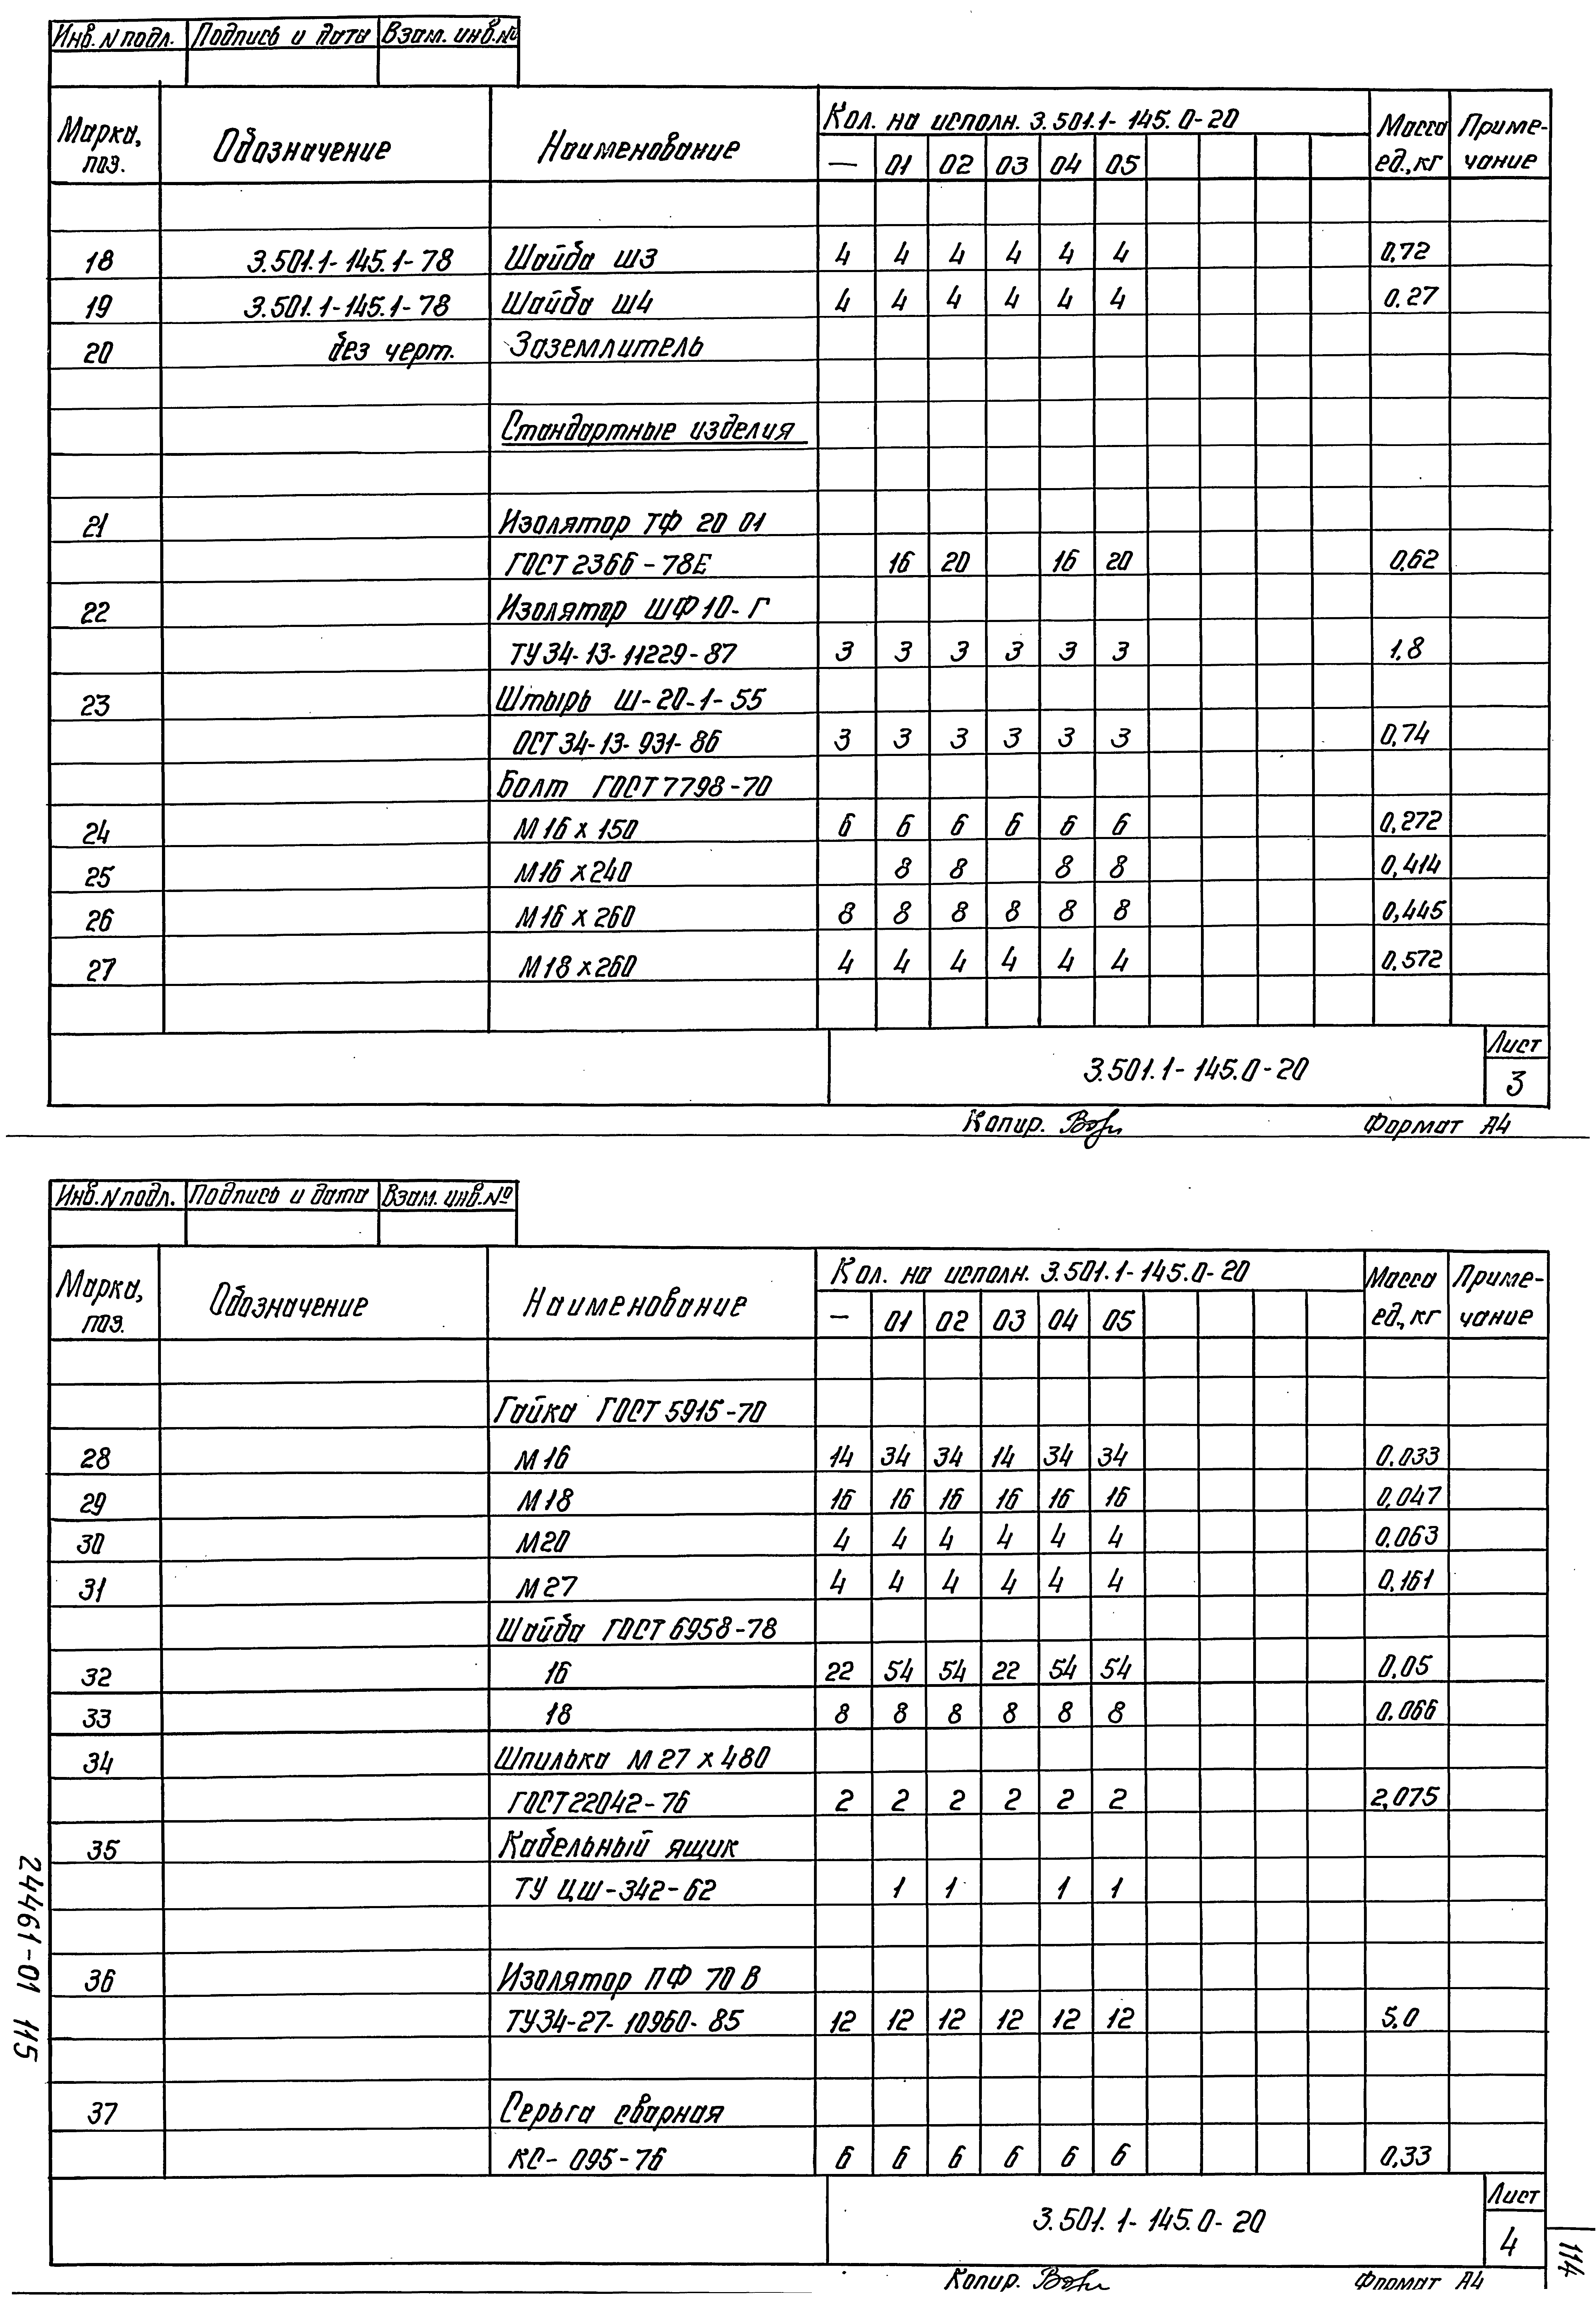 Инв. N подл. Подпись и дата Взам. инв. №
Марка, поз. Обозначение Наименование Кол. на исполн. 3.501.1-145.0-20 Масса ед., кг Приме-чание
— 01 02 03 04 05
18 3.501.1-145.1-78 Шайба Ш3 4 4 4 4 4 4 0,72
19 3.501.1-145.1-78 Шайба Ш4 4 4 4 4 4 4 0.27
20 без черт. Заземлитель
Стандартные изделия
21 Изолятор ТФ 20 01
ГОСТ 2366-78Е 16 20 16 20 0,62
22 Изолятор ШФ 10-Г
ТУ 34-13-11229-87 3 3 3 3 3 3 1,8
23 Штырь Ш-20-1-55
ОСТ 34-13-931-86 3 3 3 3 3 3 0,74
Болт ГОСТ 7798-70
24 М16 х 150 6 6 6 6 6 6 0,272
25 М16 х 240 8 8 8 8 0,414
26 М16 х 260 8 8 8 8 8 8 0,445
27 М18 х 260 4 4 4 4 4 4 0.572
3.501.1-145.0-20 Лист 3
Копир. Формат А4
Инв. N подл. Подпись и дата Взам. инв. №
Марка, поз. Обозначение Наименование Кол. на исполн. 3.501.1-145.0-20 Масса ед., кг Приме-чание
— 01 02 03 04 05
Гайка ГОСТ 5915-70
28 М16 14 34 34 14 34 34 0.033
29 М18 16 16 16 16 16 16 0,047
30 М20 4 4 4 4 4 4 0.063
31 М27 4 4 4 4 4 4 0,161
Шайба ГОСТ 6958-78
32 16 22 54 54 22 54 54 0,05
33 18 8 8 8 8 8 8 0.066
34 Шпилька М27 х 480
ГОСТ 22042-76 2 2 2 2 2 2 2,075
35 Кабельный ящик
ТУ ЦШ-342-62 1 1 1 1
36 Изолятор ПФ 70 В
ТУ34-27-10960-85 12 12 12 12 12 12 5.0
37 Серьга сварная
КС-095-76 6 6 6 6 6 6 0,33
3.501.1-145.0-20 Лист 4
Копир. Формат А4
24461-01 115
114